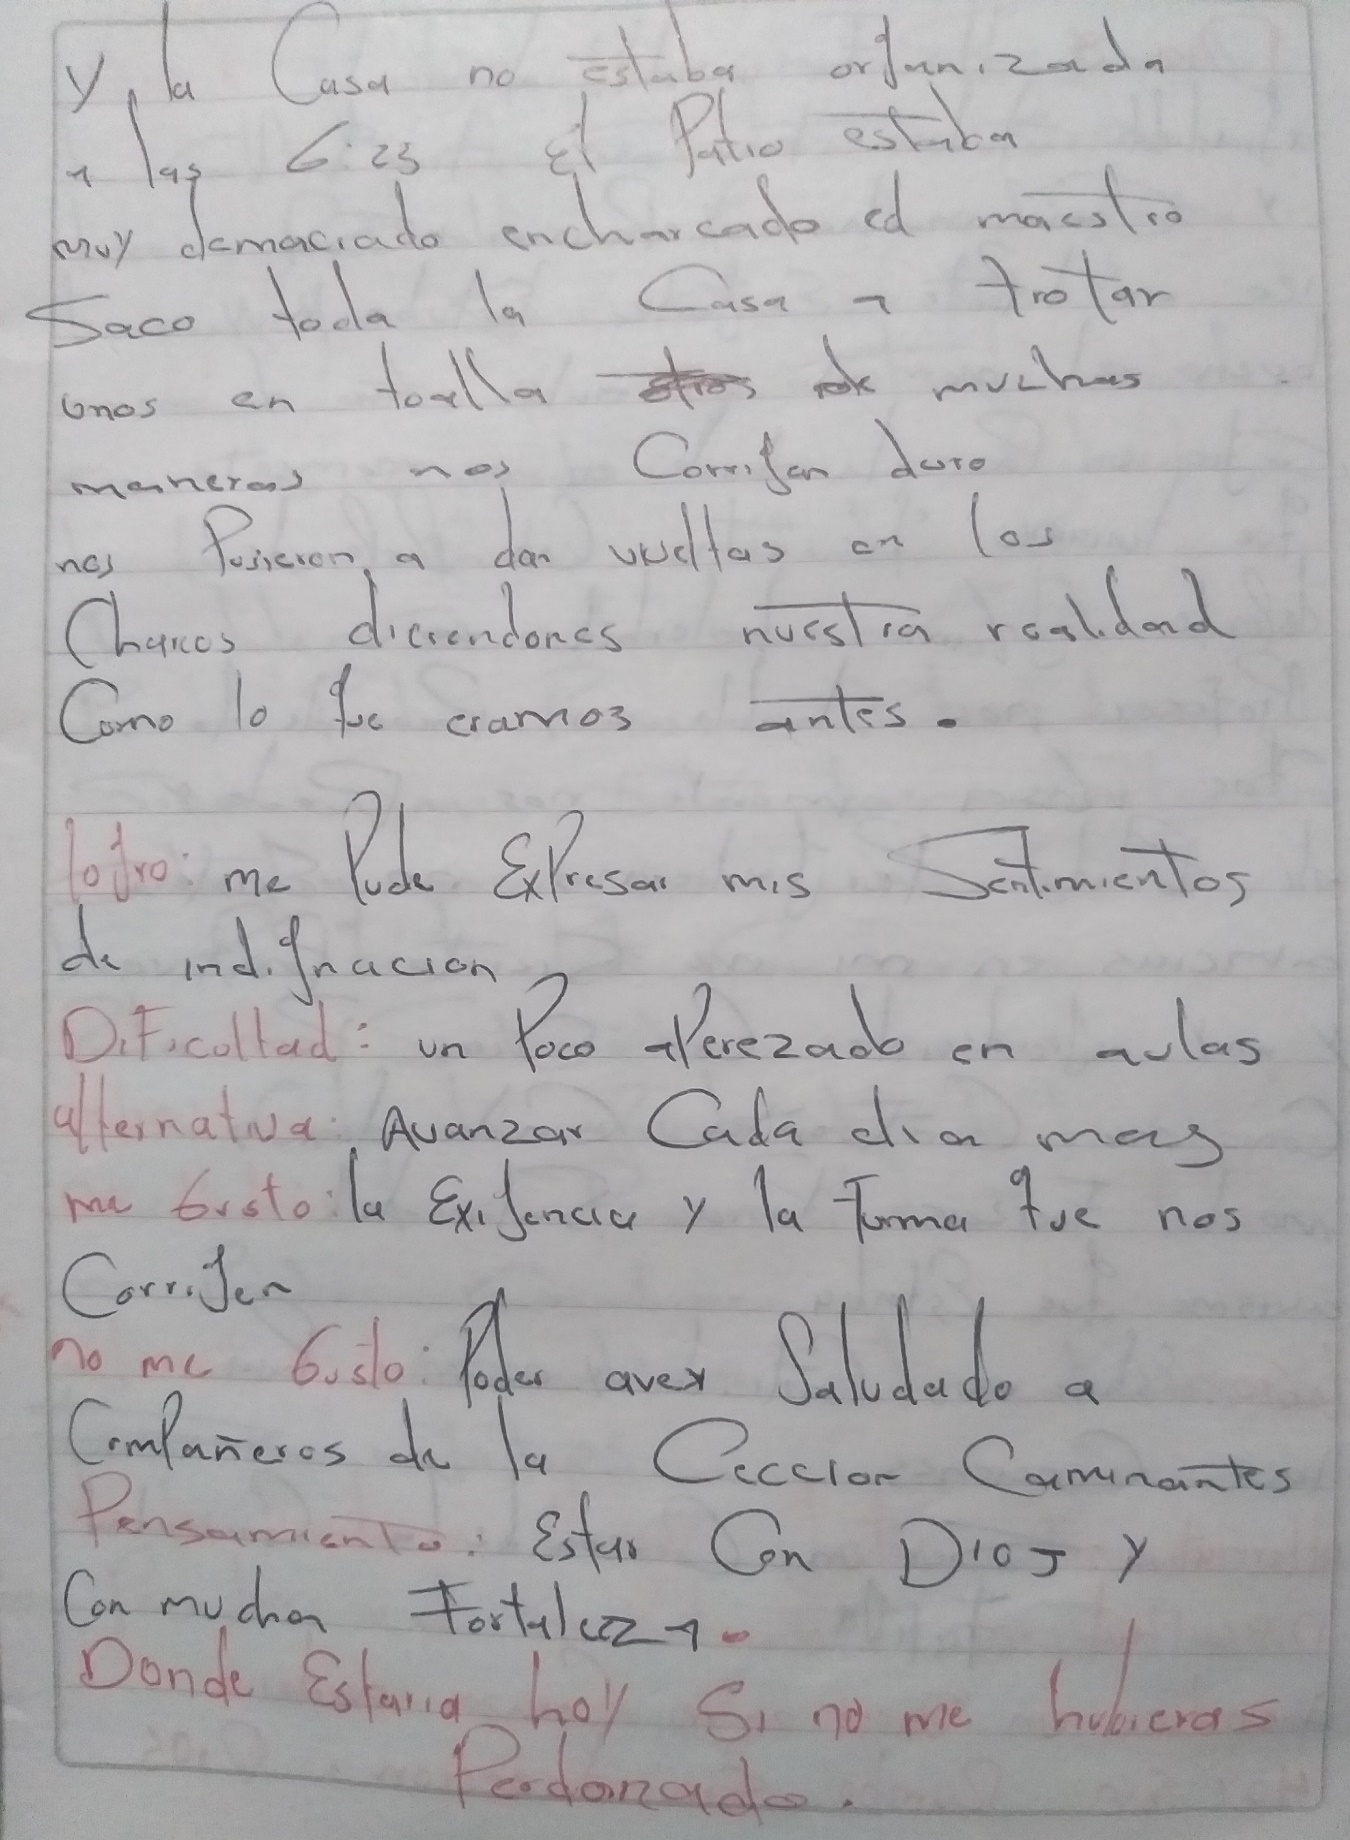 y la Casa no estaba organizada
a las 6:23 El Patio estaba
muy demaciado encharcado ed maestro
Saco toda la Casa a trotar
unos en toalla otros de muchas
maneras nos Corrigen duro
nos Pusieron a dar vueltas en los
Charcos diciendones nuestra realidad
Como lo que eramos antes.
logro: me Pude Expresar mis Sentimientos
de indignacion
Dificultad: un Poco aPerezado en aulas
alternativa: Avanzar Cada dia mas
me Gusto: la Exigencia y la Forma que nos
Corrigen
no me Gusto: Poder aver Saludado a
Compañeros de la Ceccion Caminantes
Pensamiento: Estar Con DIOS y
Con mucha Fortaleza.
Donde Estaria hoy Si no me hubieras
Perdonado.